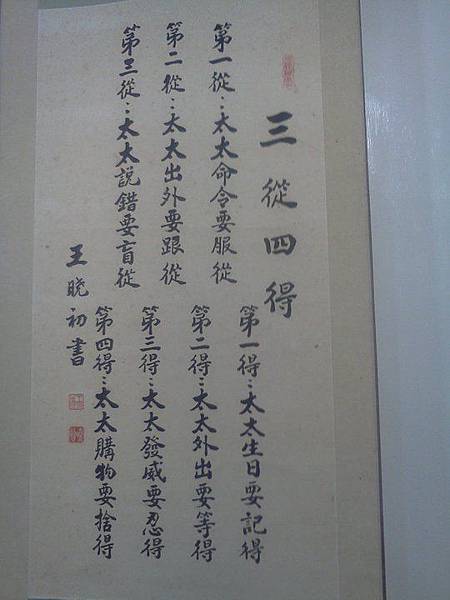 三從四得
第一從：太太命令要服從
第二從：太太出外要跟從
第三從：太太說錯要盲從
第一得：太太生日要記得
第二得：太太外出要等得
第三得：太太發威要忍得
第四得：太太購物要捨得
王曉初書